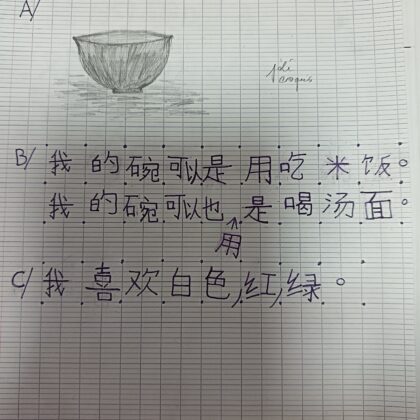 A/
joli
B/ 我的碗可以是用吃米饭。
我的碗可以也是喝汤面。
用
C/ 我喜欢白色,红,绿。